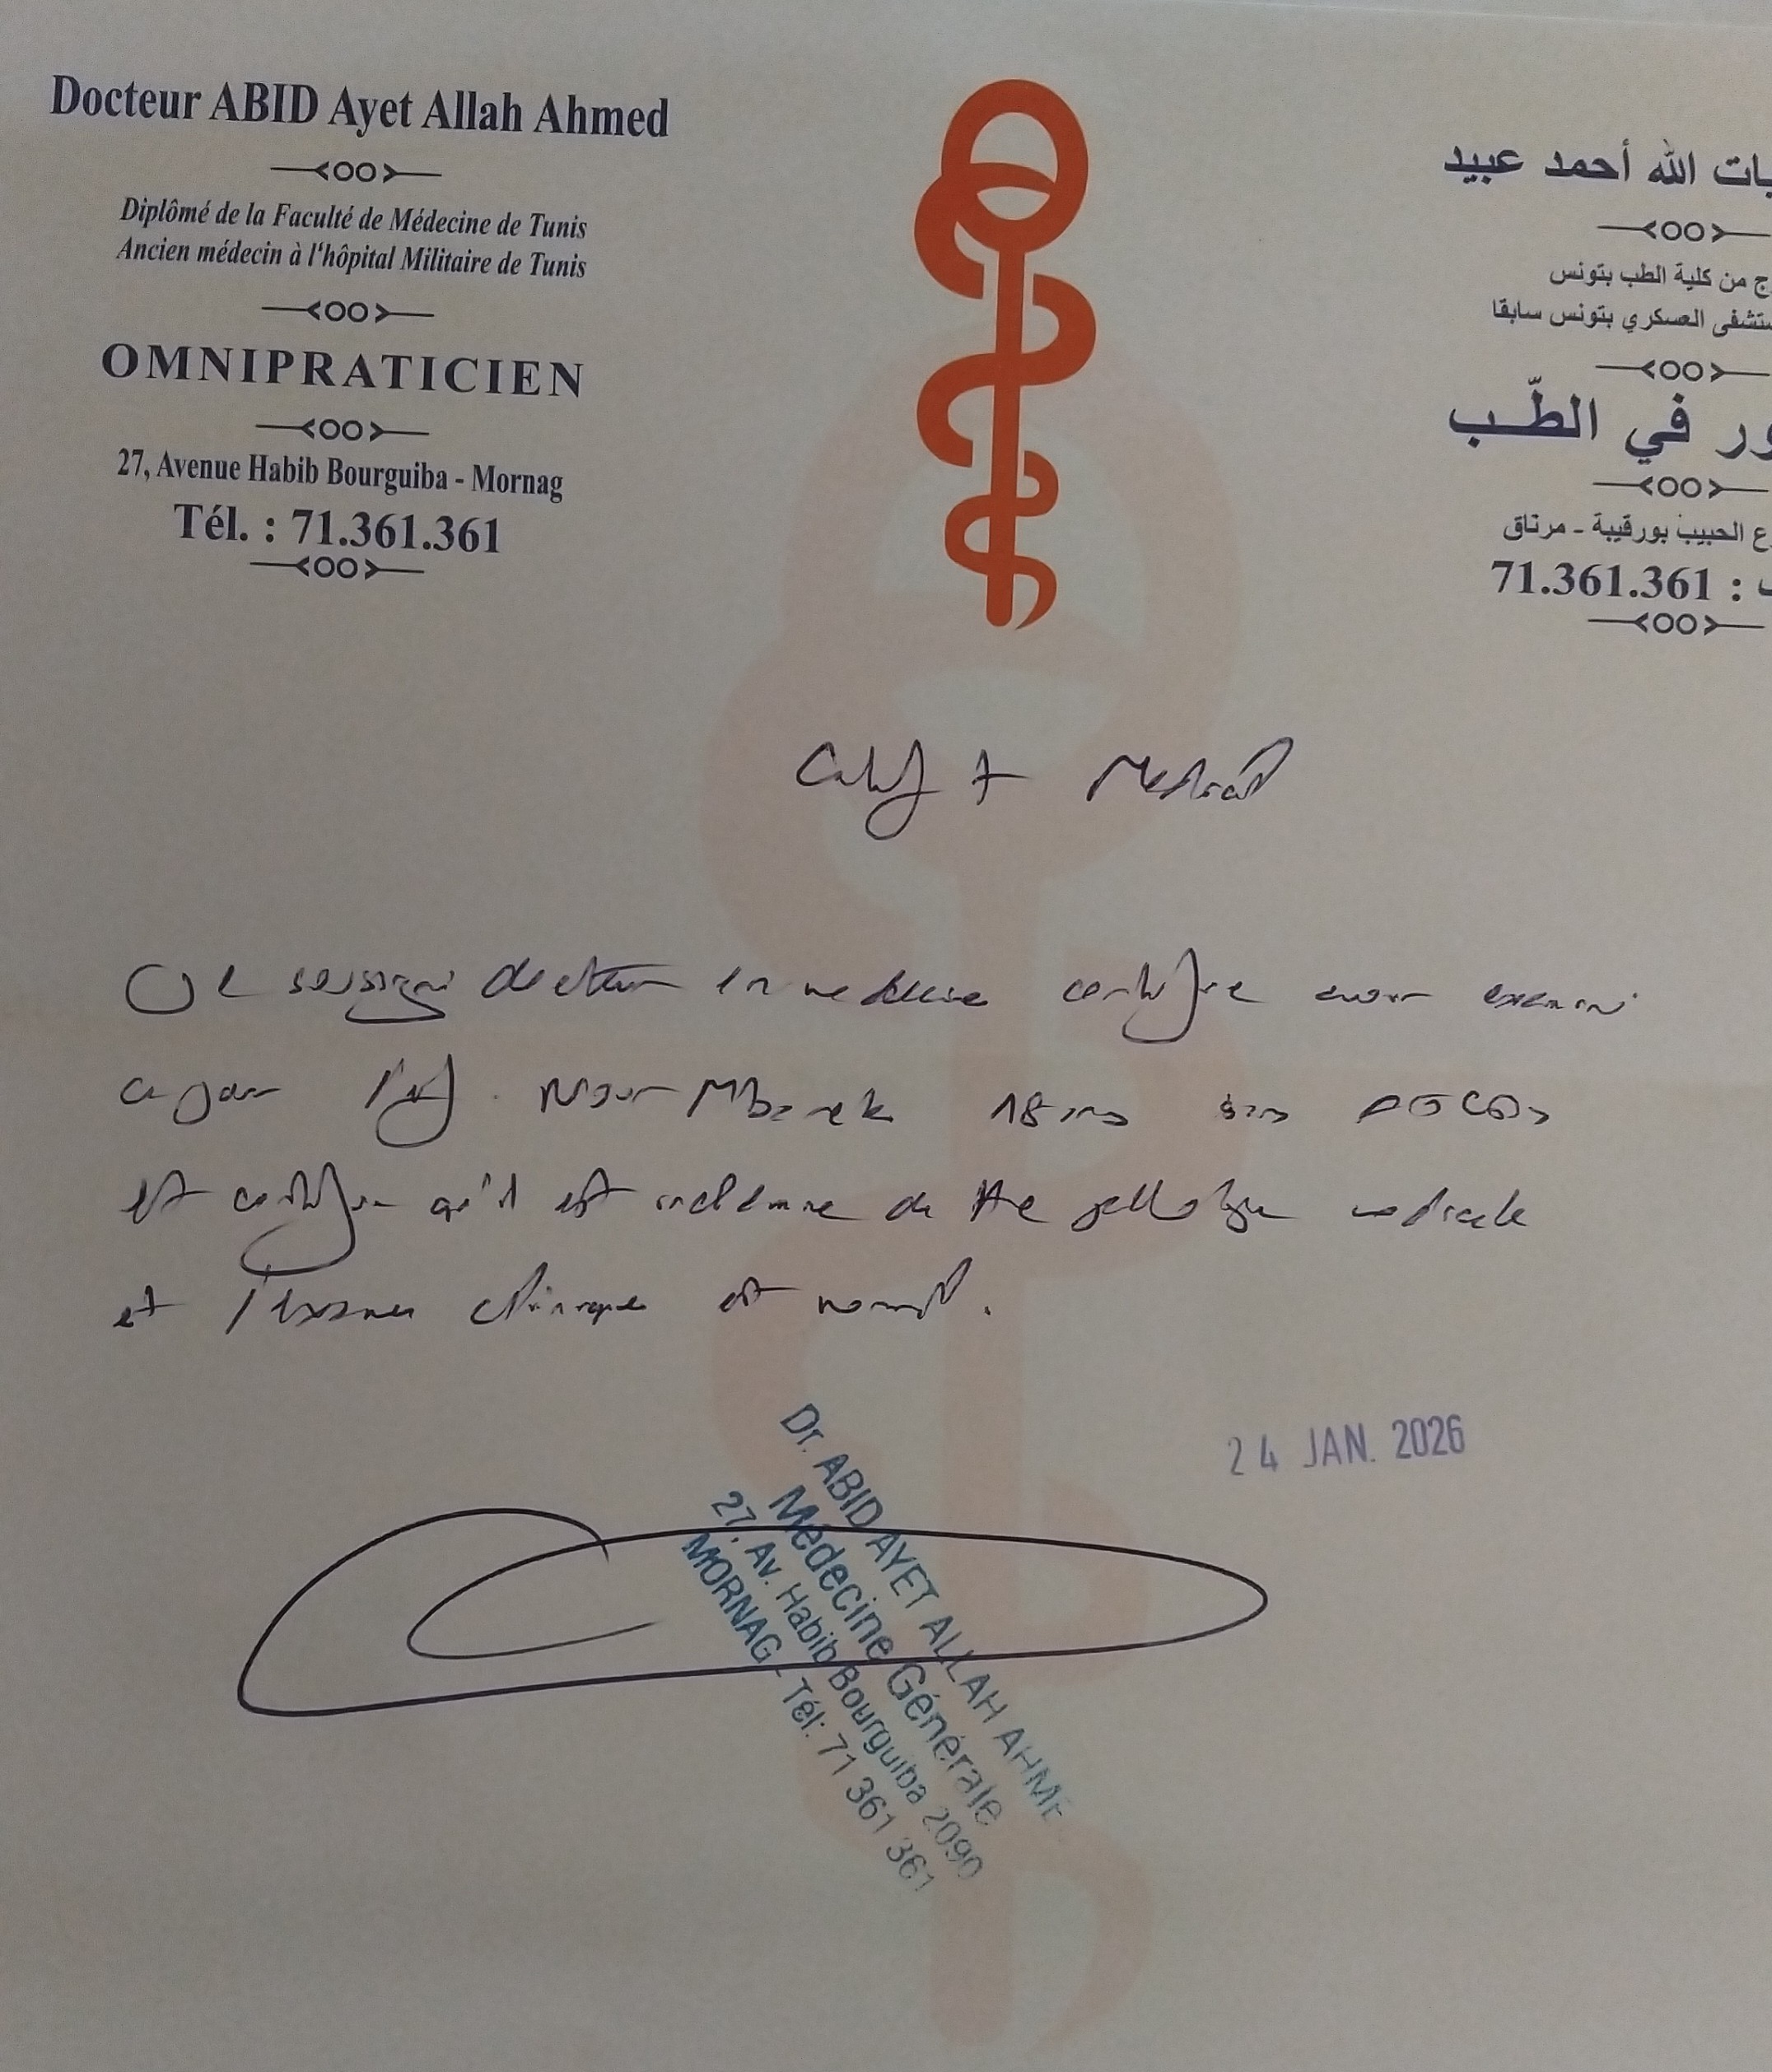 Docteur ABID Ayet Allah Ahmed
Diplômé de la Faculté de Médecine de Tunis
Ancien médecin à l'hôpital Militaire de Tunis
OMNIPRATICIEN
27, Avenue Habib Bourguiba - Mornag
Tél. : 71.361.361
يات الله أحمد عبيد
ج من كلية الطب بتونس
ستشفى العسكري بتونس سابقا
ور في الطّب
ع الحبيب بورقيبة - مرناق
71.361.361 :
Certificat Medical
Je soussigné docteur en medecine certifie avoir examiné
ce jour Nour Mbarek 18 ans
et certifie qu'il est indemne de tte pathologie medicale
et l'examen clinique est normal.
24 JAN. 2026
Dr. ABID AYET ALLAH AHME
Médecine Générale
27, Av. Habib Bourguiba 2090
MORNAG - Tél: 71 361 361